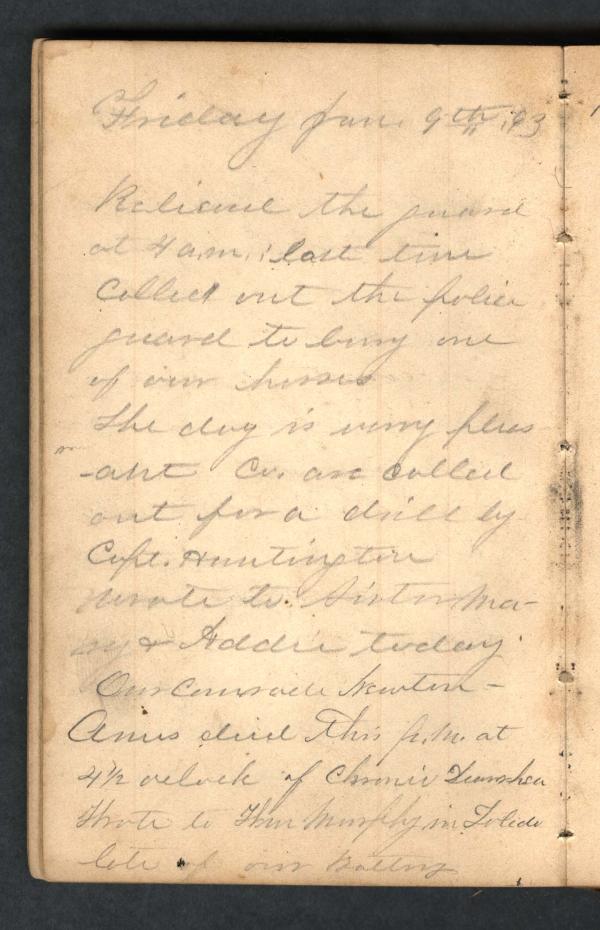 Friday Jan. 9th '63
Relieved the guard
at 4 a.m. last time
Called out the police
guard to bury one
of our horses
The day is very pleas
-ant Co. are called
out for a drill by
Capt. Huntington
Wrote to Sister Ma-
ry & Addie today.
Our Comrade Newton-
Amus died this p.m. at
4½ oclock of Chronic
Wrote to Murphy in Toledo
late of our Battery